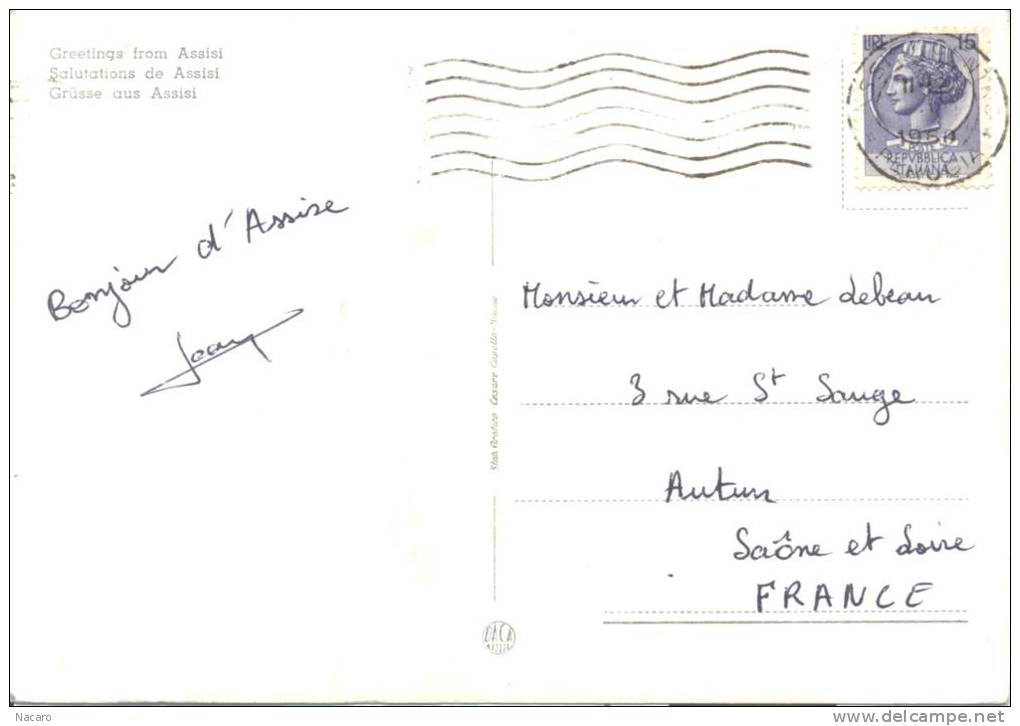 Greetings from Assisi
Salutations de Assisi
Grüsse aus Assisi
LIRE 15
1960
POSTE
REPVBBLICA
ITALIANA
Bonjour d'Assise
Monsieur et Madame Lebeau
3 rue St Sauge
Autun
Saône et Loire
FRANCE
Stab. Grafico Cesare Capello-Milano
DACA
Nacaro
delcampe.net